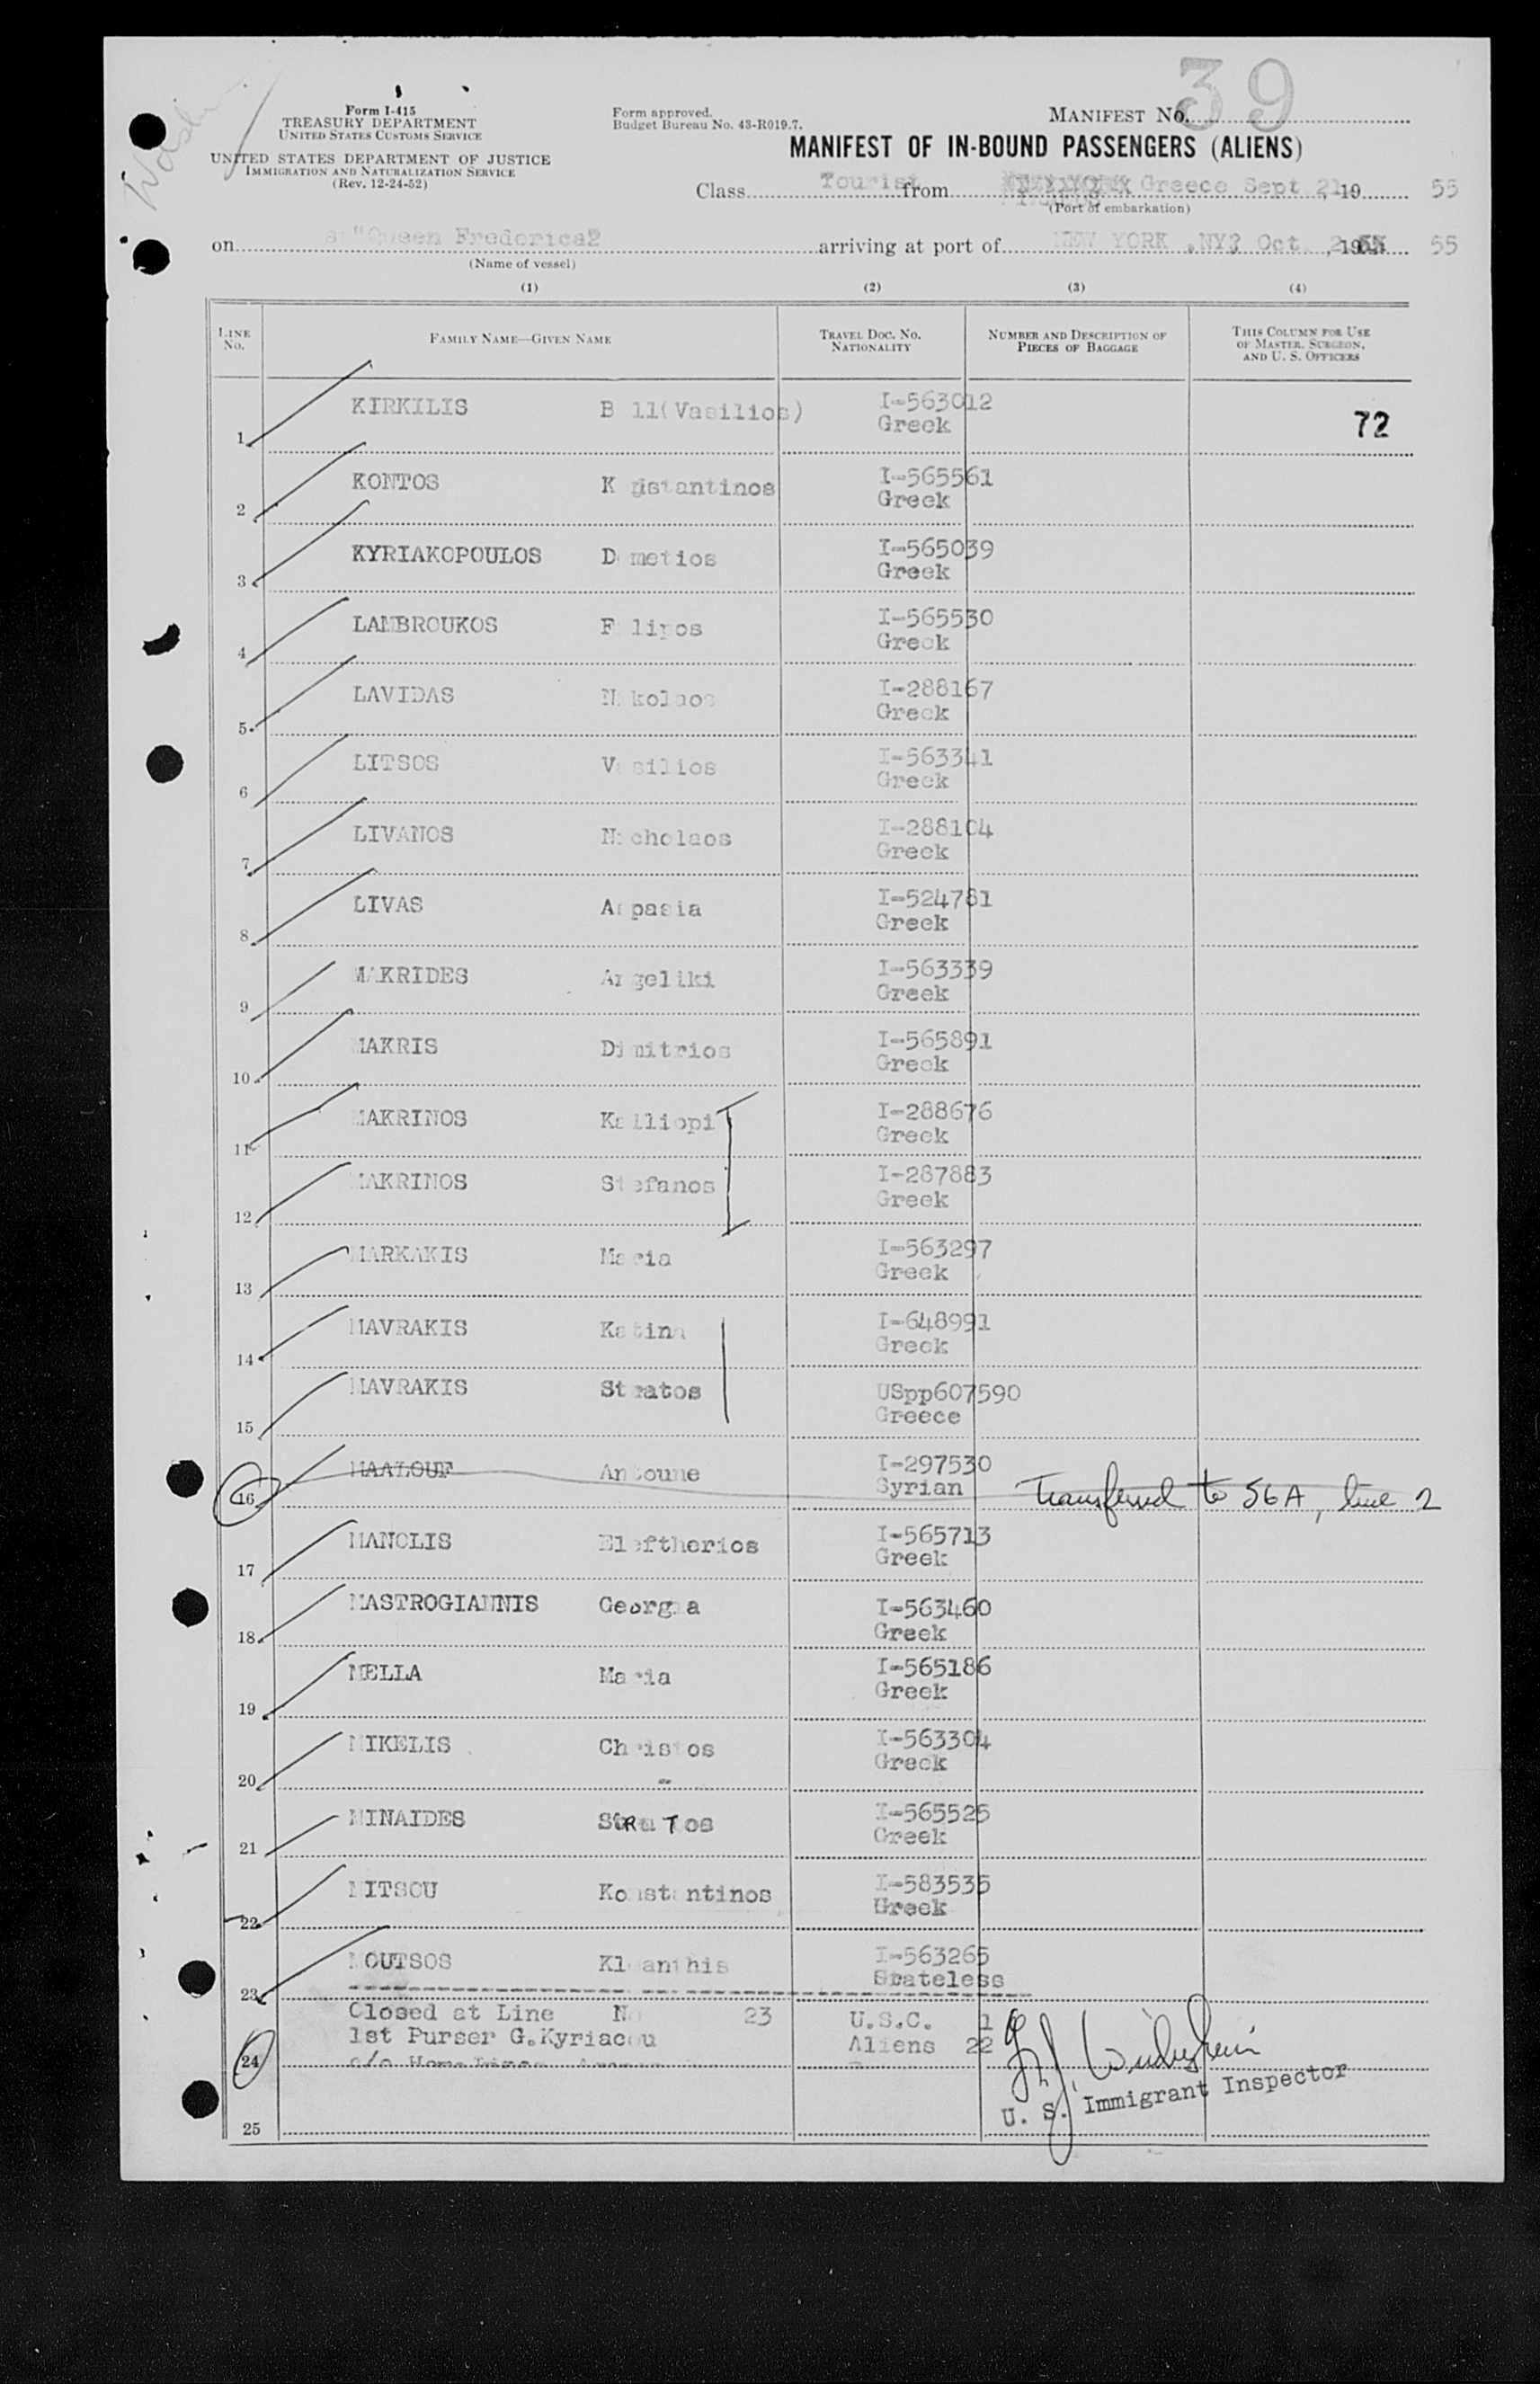 39
Form I-415
TREASURY DEPARTMENT
UNITED STATES CUSTOMS SERVICE
Form approved.
Budget Bureau No. 43-R019.7.
MANIFEST No.
UNITED STATES DEPARTMENT OF JUSTICE
IMMIGRATION AND NATURALIZATION SERVICE
(Rev. 12-24-52)
MANIFEST OF IN-BOUND PASSENGERS (ALIENS)
Class Tourist from Greece Sept 21, 19 55
(Port of embarkation)
on "Queen Frederica" arriving at port of NEW YORK, NY, Oct. 2, 19 55
(Name of vessel)
(1) (2) (3) (4)
LINE No. FAMILY NAME—GIVEN NAME TRAVEL DOC. No. NATIONALITY NUMBER AND DESCRIPTION OF PIECES OF BAGGAGE THIS COLUMN FOR USE OF MASTER, SURGEON, AND U. S. OFFICERS
1 KIRKILIS B ll(Vasilios) I-563012 Greek 72
2 KONTOS K nstantinos I-565561 Greek
3 KYRIAKOPOULOS D metios I-565039 Greek
4 LAMBROUKOS F lipos I-565530 Greek
5 LAVIDAS N kolaos I-288167 Greek
6 LITSOS Vasilios I-563341 Greek
7 LIVANOS Nicholaos I-288104 Greek
8 LIVAS Aspasia I-524781 Greek
9 MAKRIDES Angeliki I-563339 Greek
10 MAKRIS Dimitrios I-565891 Greek
11 MAKRINOS Kalliopi I-288676 Greek
12 MAKRINOS Stefanos I-287883 Greek
13 MARKAKIS Maria I-563297 Greek
14 MAVRAKIS Katina I-648991 Greek
15 MAVRAKIS Stratos USpp607590 Greece
16 MAALOUF Antoune I-297530 Syrian Transferred to 56A, line 2
17 MANOLIS Eleftherios I-565713 Greek
18 MASTROGIANNIS Georgia I-563460 Greek
19 MELLA Maria I-565186 Greek
20 MIKELIS Christos I-563304 Greek
21 MINAIDES StRaTos I-565525 Greek
22 MITSOU Konstantinos I-583535 Greek
23 MOUTSOS Kleanthis I-563265 Stateless
Closed at Line No 23 U.S.C. 1
1st Purser G.Kyriacou Aliens 22
24 c/o Home Lines
U. S. Immigrant Inspector
25